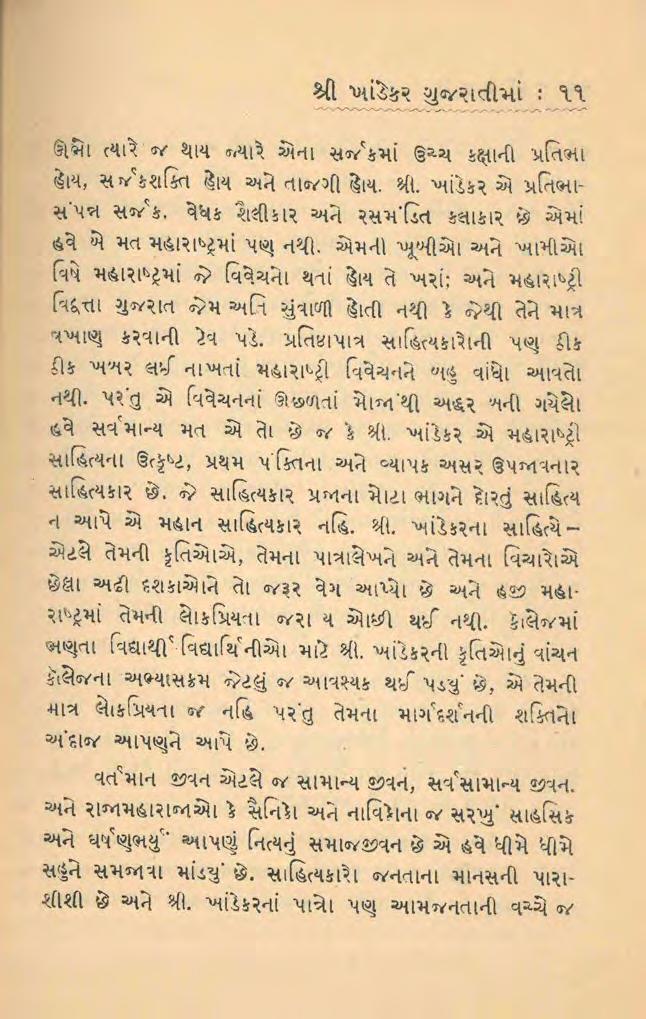 શ્રી ખાંડેકર ગુજરાતીમાં : ૧૧
ઊભો ત્યારે જ થાય જ્યારે એના સર્જકમાં ઉચ્ચ કક્ષાની પ્રતિભા
હોય, સર્જકશક્તિ હોય અને તાજગી હોય. શ્રી. ખાંડેકર એ પ્રતિભા-
સંપન્ન સર્જક. વેધક શૈલીકાર અને રસમંડિત કલાકાર છે એમાં
હવે બે મત મહારાષ્ટ્રમાં પણ નથી. એમની ખૂબીઓ અને ખામીઓ
વિષે મહારાષ્ટ્રમાં જે વિવેચનો થતાં હોય તે ખરાં; અને મહારાષ્ટ્રી
વિદ્વત્તા ગુજરાત જેમ અતિ સુંવાળી હોતી નથી કે જેથી તેને માત્ર
વખાણ કરવાની ટેવ પડે. પ્રતિષ્ઠાપાત્ર સાહિત્યકારોની પણ ઠીક
ઠીક ખબર લઈ નાખતાં મહારાષ્ટ્રી વિવેચનને બહુ વાંધો આવતો
નથી. પરંતુ એ વિવેચનનાં ઊછળતાં મોજાંથી અદ્ધર બની ગયેલો
હવે સર્વમાન્ય મત એ તો છે જ કે શ્રી. ખાંડેકર એ મહારાષ્ટ્રી
સાહિત્યના ઉત્કૃષ્ટ, પ્રથમ પંક્તિના અને વ્યાપક અસર ઉપજાવનાર
સાહિત્યકાર છે. જે સાહિત્યકાર પ્રજાના મોટા ભાગને દોરતું સાહિત્ય
ન આપે એ મહાન સાહિત્યકાર નહિ. શ્રી. ખાંડેકરના સાહિત્યે –
એટલે તેમની કૃતિઓએ, તેમના પાત્રાલેખને અને તેમના વિચારોએ
છેલ્લા અઢી દશકાઓને તો જરૂર વેગ આપ્યો છે અને હજી મહા-
રાષ્ટ્રમાં તેમની લોકપ્રિયતા જરા ય ઓછી થઈ નથી. કૉલેજમાં
ભણતા વિદ્યાર્થી-વિદ્યાર્થિનીઓ માટે શ્રી. ખાંડેકરની કૃતિઓનું વાંચન
કૉલેજના અભ્યાસક્રમ જેટલું જ આવશ્યક થઈ પડ્યું છે, એ તેમની
માત્ર લોકપ્રિયતા જ નહિ પરંતુ તેમના માર્ગદર્શનની શક્તિનો
અંદાજ આપણને આપે છે.
વર્તમાન જીવન એટલે જ સામાન્ય જીવન, સર્વસામાન્ય જીવન.
અને રાજામહારાજાઓ કે સૈનિકો અને નાવિકોના જ સરખું સાહસિક
અને ઘર્ષણભર્યું આપણું નિત્યનું સમાજજીવન છે એ હવે ધીમે ધીમે
સહુને સમજાવા માંડ્યું છે. સાહિત્યકારો જનતાના માનસની પારા-
શીશી છે અને શ્રી. ખાંડેકરનાં પાત્રો પણ આમજનતાની વચ્ચે જ